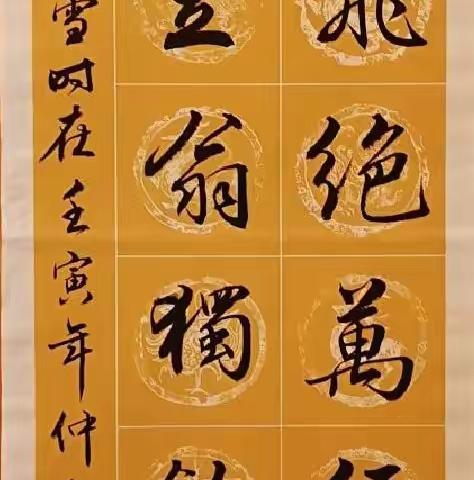 飛絶萬
翁獨
雪时在壬寅年仲